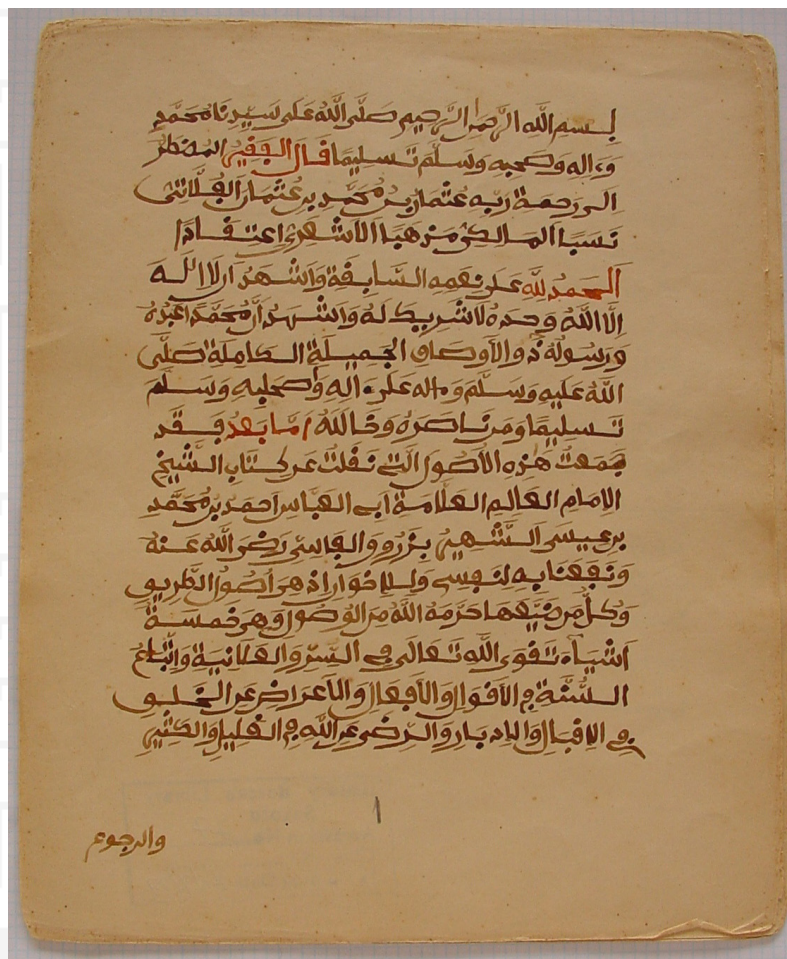 بسم الله الرحمن الرحيم صلى الله على سيدنا محمد
وءاله وصحبه وسلم تسليما قال الفقير المضطر
الى رحمة ربه عثمان بن محمد بن عثمان الفلاتى
نسبا المالكى مذهبا الاشعرى اعتقادا
الحمد لله على نعمه السابقة واشهد ان لا اله
الا الله وحده لا شريك له واشهد ان محمدا عبده
ورسوله ذو الاوصاف الجميلة الكاملة صلى
الله عليه وسلم وءاله على ءاله وصحابه وسلم
تسليما ومن ناصره ووالله اما بعد فقد
جمعت هذه الاصول التى نقلت عن كتاب الشيخ
الامام العالم العلامة ابى العباس احمد بن محمد
بن عيسى الشهير بزروق الفاسى رضى الله عنه
ونفعنا به لنفسى وللاخوان اذ هى اصول الطريق
وكل من ضيعها حرمه الله من الوصول وهى خمسة
اشياء تقوى الله تعالى فى السر والعلانية واتباع
السنة فى الاقوال والافعال والاعراض عن الخلق
فى الاقبال والادبار والرضى عن الله فى القليل والكثير
1
والرجوع